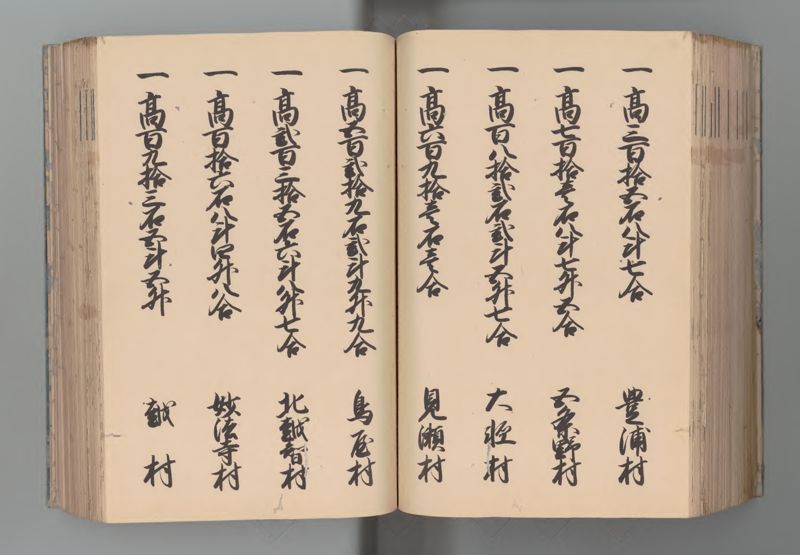 一 高三百拾五石八斗七合 豊浦村
一 高七百拾壱石八斗七升五合 五条野村
一 高百八拾弐石弐斗五升七合 大軽村
一 高六百九拾壱石壱合 見瀬村
一 高五百弐拾九石弐斗九升九合 鳥屋村
一 高弐百三拾五石六斗八升七合 北越智村
一 高百拾六石八斗四升八合 妙法寺村
一 高百九拾三石五斗五升 越村